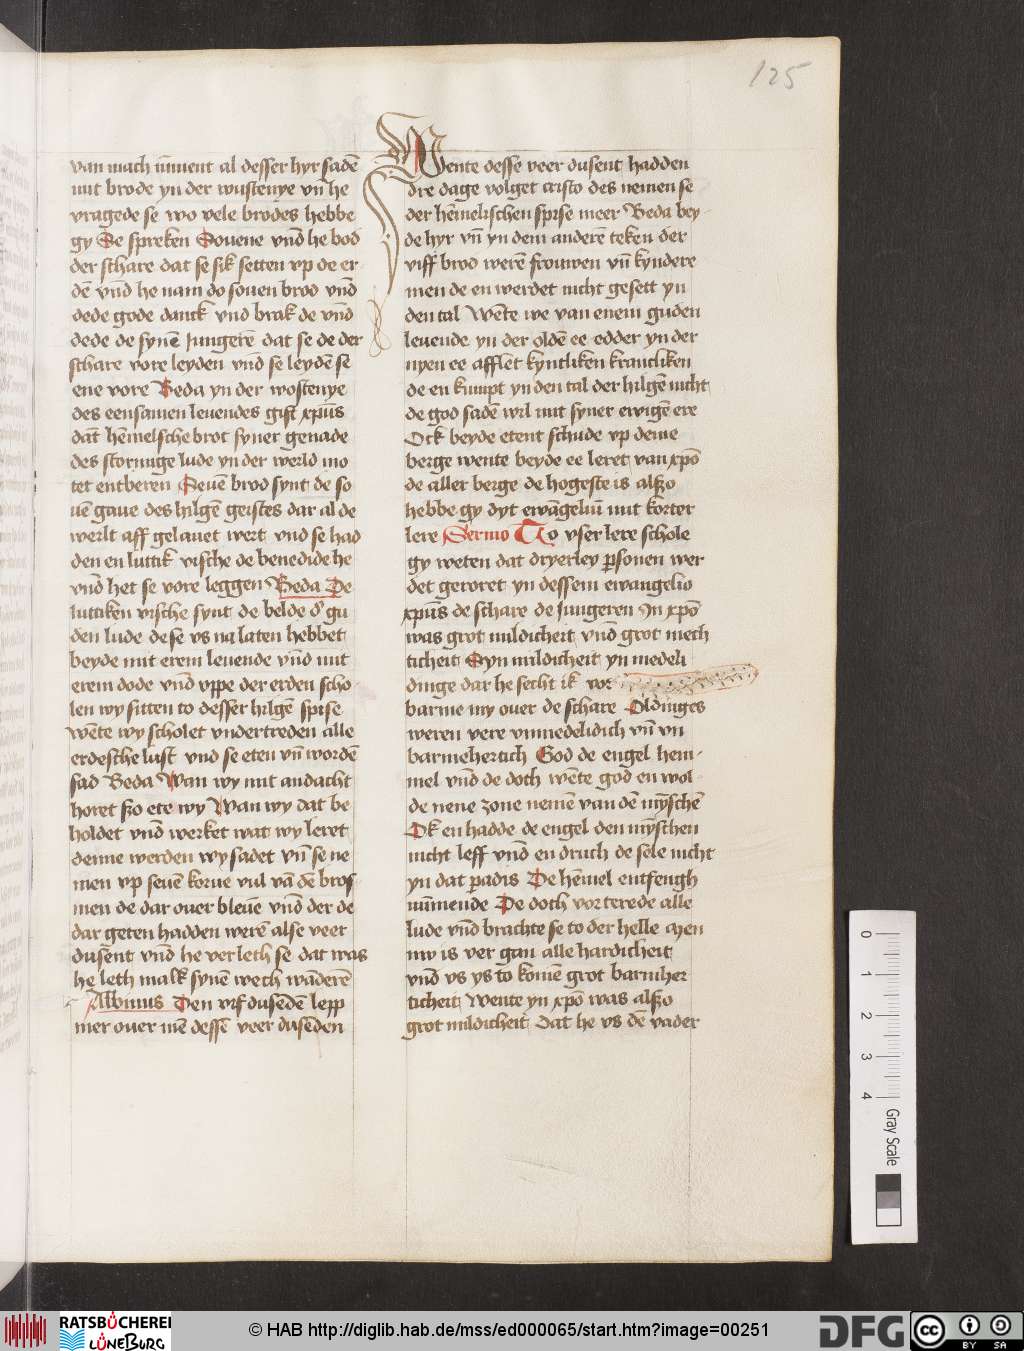 125
van mach ūment al desser hyr sadē
mit brode yn der wustenye vn̄ he
vragede se wo vele brodes hebbe
gy Se spreken Souene vnd̄ he bod
der schare dat se sik setten vp de er
dē vnd̄ he nam do souen brod vnd̄
dede gode danck vnd brak de vnd̄
dede de synē Jungerē dat se de der
schare vore leyden vnd̄ se leydē se
ene vore Beda yn der wostenye
des eensamen leuendes gift xpūs
dat hēmelsche brot syner genade
des stornige lude yn der werld mo
tet entberen Seuē brod synt de so
uē gaue des hilgē geistes dar al de
werlt aff gelauet wert vnd se had
den en luttik vische de benedide he
vnd̄ het se vore leggen Beda De
luttiken vische synt de belde d' gu
den lude de se vs na laten hebbet
beyde mit erem leuende vnd̄ mit
erem dode vnd̄ vppe der erden scho
len wy sitten to desser hilgē spise
wēte wy scholet vndertreden alle
erdesche lust vnd se eten vn̄ wordē
sad Beda Wan wy mit andacht
horet szo ete wy Wan wy dat be
holdet vnd̄ werket wat wy leret
denne werden wy sadet vn̄ se ne
men vp seuē korue vul vā dē bros
men de dar ouer bleuē vnd̄ der de
dar geten hadden werē alse veer
dusent vnd̄ he verleth se dat was
he leth malk synē wech wāderē
Albinus Den vif dusēdē lepp
mer ouer mē dessē veer dusēden
Wente desse veer dusent hadden
dre dage volget cristo des nemen se
der hēmelischen spise meer Beda bey
de hyr vn̄ yn dem anderē teken der
viff brod werē frouwen vn̄ kyndere
men de en werdet nicht gesett yn
den tal Wēte we van enem guden
leuende yn der oldē ee edder yn der
nyen ee afflēt kyntliken krancliken
de en kumpt yn den tal der hilgē nicht
de god sadē wil mit syner ewigē ere
Ock beyde etent schude vp deme
berge wente beyde ee leret van xpō
de aller berge de hogeste is alszo
hebbe gy dyt ewāgeliū mit korter
lere Sermo To vser lere schole
gy weten dat dryerley psonen wer
det geroret yn dessem ewangelio
xpūs de schare de Jungeren In xpō
was grot mildicheit vnd̄ grot mech
ticheit Syn mildicheit yn medeli
dinge dar he secht ik vor
barme my ouer de schare Oldinges
weren vere vnmedelidich vn̄ vn
barmehertich God de engel hem
mel vnd̄ de doch wēte god en wol
de nene zone nemē van dē mȳschē
Ok en hadde de engel den mȳschen
nicht leff vnd̄ en druch de sele nicht
yn dat padis De hēmel entfengh
nūmende De doch vorterede alle
lude vnd̄ brachte se to der helle Men
nv is ver gan alle hardicheit
vnd̄ vs ys to komē grot barmher
ticheit Wente yn xpō was alszo
grot mildicheit dat he vs dē vader
0
1
2
3
4
Gray Scale
RATSBÜCHEREI
LÜNEBURG
© HAB http://diglib.hab.de/mss/ed000065/start.htm?image=00251
DFG
cc
BY SA